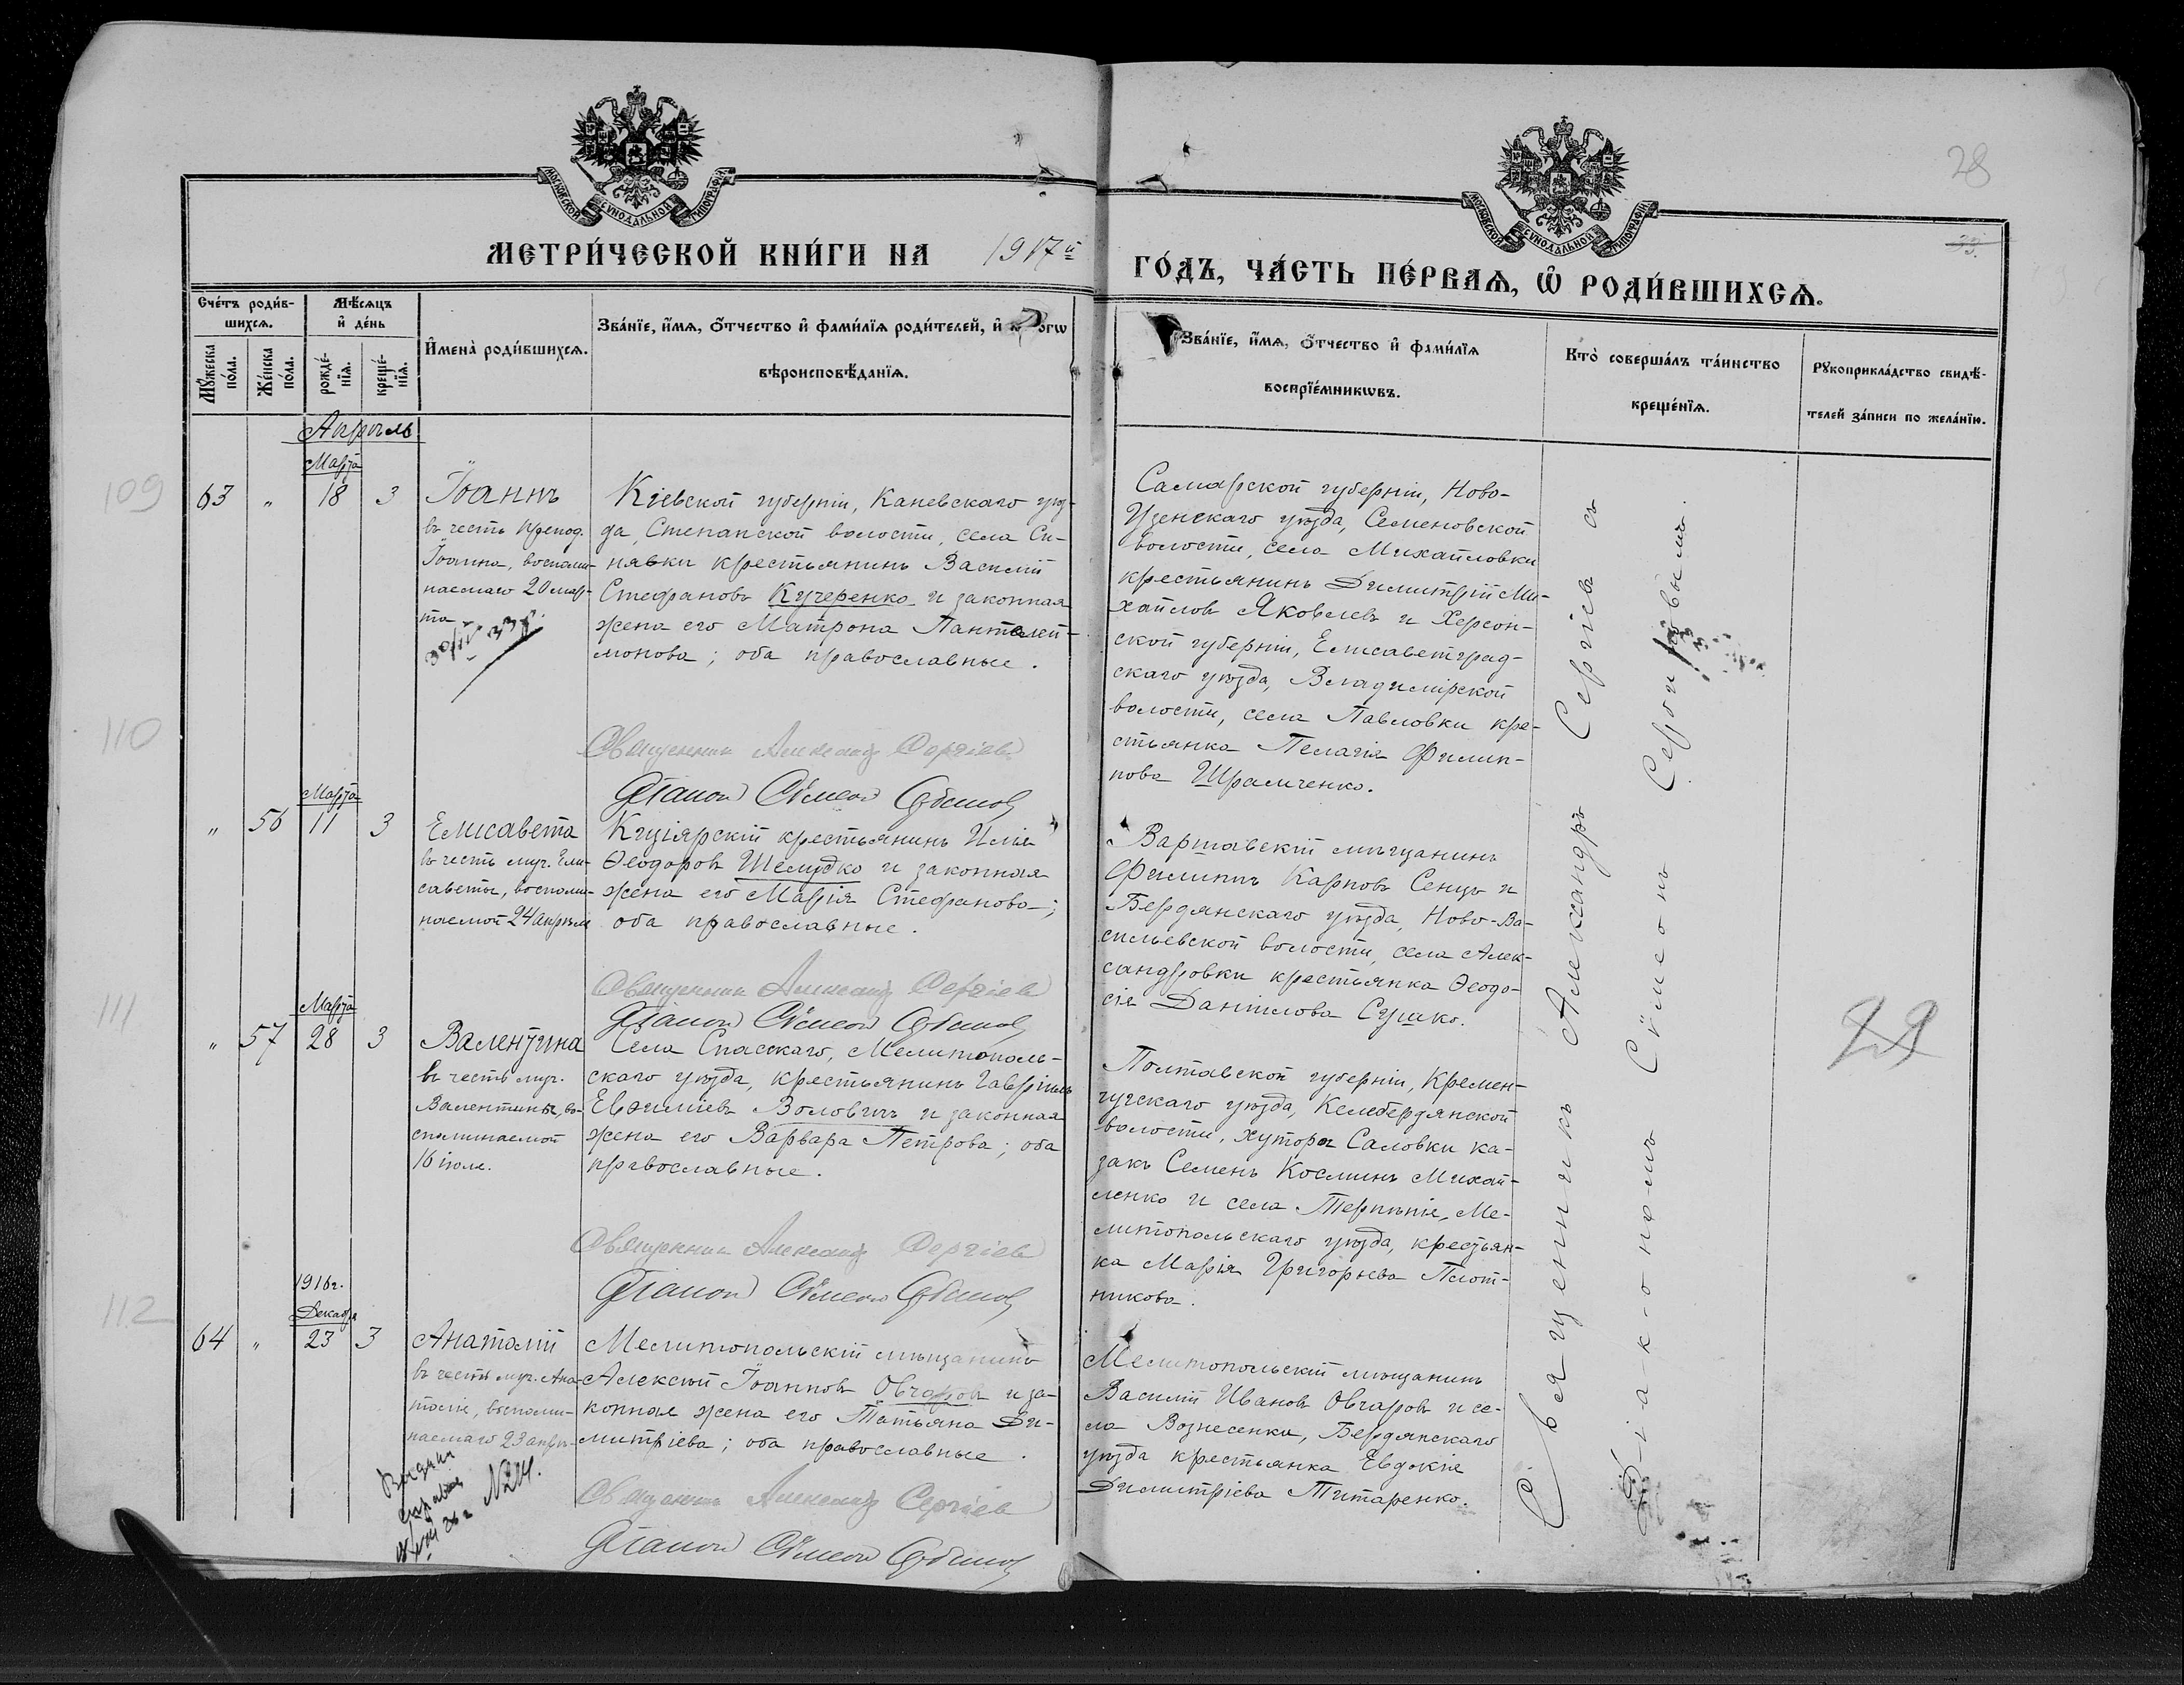 28
33.
МОСКОВСКОЙ СѴНОДАЛЬНОЙ ТИПОГРАФІИ
МОСКОВСКОЙ СѴНОДАЛЬНОЙ ТИПОГРАФІИ
МЕТРИ́ЧЕСКОЙ КНИ́ГИ НА 1917й
ГО́ДЪ, ЧА́СТЬ ПЕ́РВАѦ, Ѽ РОДИ́ВШИХСѦ.
Сче́тъ роди́в-
шихсѧ.
Мꙋ́жеска по́ла.
Же́нска по́ла.
Мѣ́сѧцъ
и҆ де́нь
рожде́-
нїѧ.
креще́-
нїѧ.
И҆мена̀ роди́вшихсѧ.
Зва́нїе, и҆́мѧ, ѻ҆́тчество и҆ фами́лїѧ роди́телей, и҆
вѣроисповѣ́данїѧ.
Зва́нїе, и҆́мѧ, ѻ҆́тчество и҆ фами́лїѧ
воспрїе́мникѡвъ.
Кто̀ соверша́лъ та́инство
креще́нїѧ.
Рꙋкоприкла́дство свидѣ́-
телей за́писи по жела́нїю.
Апрѣль
109
Марта
63 „ 18 3
Іоаннъ
въ честь препод.
Іоанна, воспоми-
наемаго 20 мар-
та
Кіевской губерніи, Каневскаго уѣз-
да, Степанской волости, села Си-
нявки крестьянинъ Василій
Стефановъ Кучеренко и законная
жена его Матрона Пантелей-
монова; оба православные.
Священник Александр Сергіев
Діакон Сѵмеон
Самарской губерніи, Ново-
Узенскаго уѣзда, Семеновской
волости, села Михайловки
крестьянинъ Димитрій Ми-
хайловъ Яковлевъ и Херсон-
ской губерніи, Елисаветград-
скаго уѣзда, Владимірской
волости, села Павловки кре-
стьянка Пелагія Филип-
пова Шрамченко.
110
Марта
„ 56 11 3
Елисавета
въ честь муч. Ели-
саветы, воспоми-
наемой 24 апрѣля
Кизіярскій крестьянинъ Илія
Ѳеодоровъ Шелудко и законная
жена его Марія Стефанова;
оба православные.
Священник Александр Сергіев
Діакон Сѵмеон
Варшавскій мѣщанинъ
Филиппъ Карповъ Сенцъ и
Бердянскаго уѣзда, Ново-Ва-
сильевской волости, села Алек-
сандровки крестьянка Ѳеодо-
сія Даніилова Сушко.
111
Марта
„ 57 28 3
Валентина
въ честь муч.
Валентины, во-
споминаемой
16 іюля.
Села Спасскаго, Мелитополь-
скаго уѣзда, крестьянинъ Гавріилъ
Евѳиміевъ Воловичъ и законная
жена его Варвара Петрова; оба
православные.
Священник Александр Сергіев
Діакон Сѵмеон
Полтавской губерніи, Кремен-
чугскаго уѣзда, Келебердянской
волости, хутора Саловки ка-
закъ Семенъ Косминъ Михай-
ленко и села Терпѣнія, Ме-
литопольскаго уѣзда, крестьян-
ка Марія Григорьева Плот-
никова.
29
112
1916г.
Декабря
64 „ 23 3
Анатолій
въ честь муч. Ана-
толія, воспоми-
наемаго 23 апрѣ-
Выдана
справка
№ 214.
Мелитопольскій мѣщанинъ
Алексѣй Іоанновъ Овчаровъ и за-
конная жена его Татьяна Ди-
митріева; оба православные.
Священник Александр Сергіев
Діакон Сѵмеон
Мелитопольскій мѣщанинъ
Василій Ивановъ Овчаровъ и се-
ла Вознесенки, Бердянскаго
уѣзда крестьянка Евдокія
Димитріева Титаренко.
Священникъ Александръ Сергіевъ съ
Діакономъ Сѵмеономъ